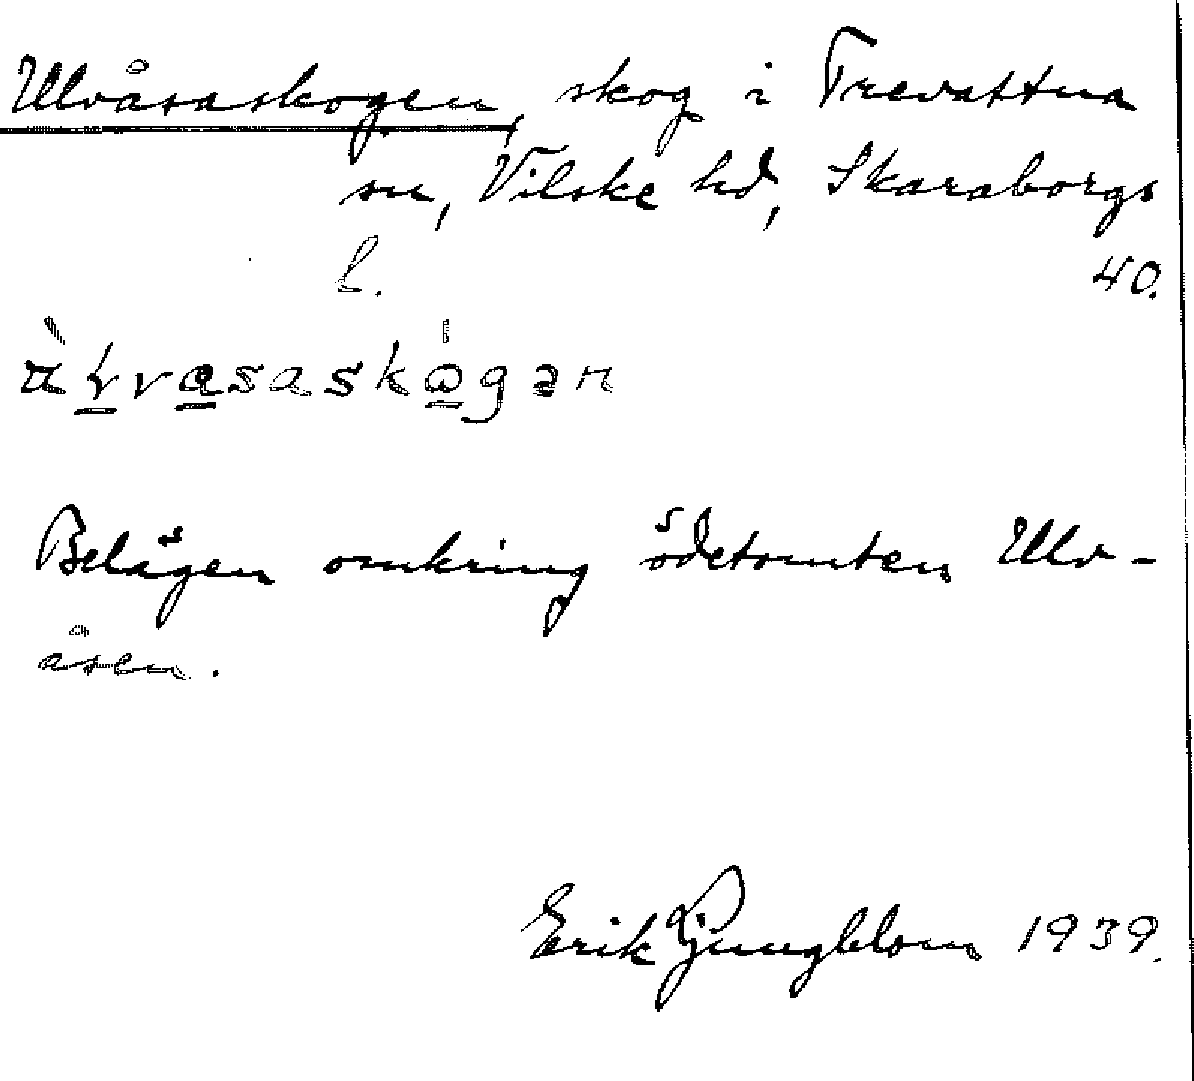 Ulvåsaskogen, skog i Trevattna
sn, Vilske hd, Skaraborgs
l. 40.
Belägen omkring ödetomten Ulv-
åsen.
Erik Ljungblom 1939.